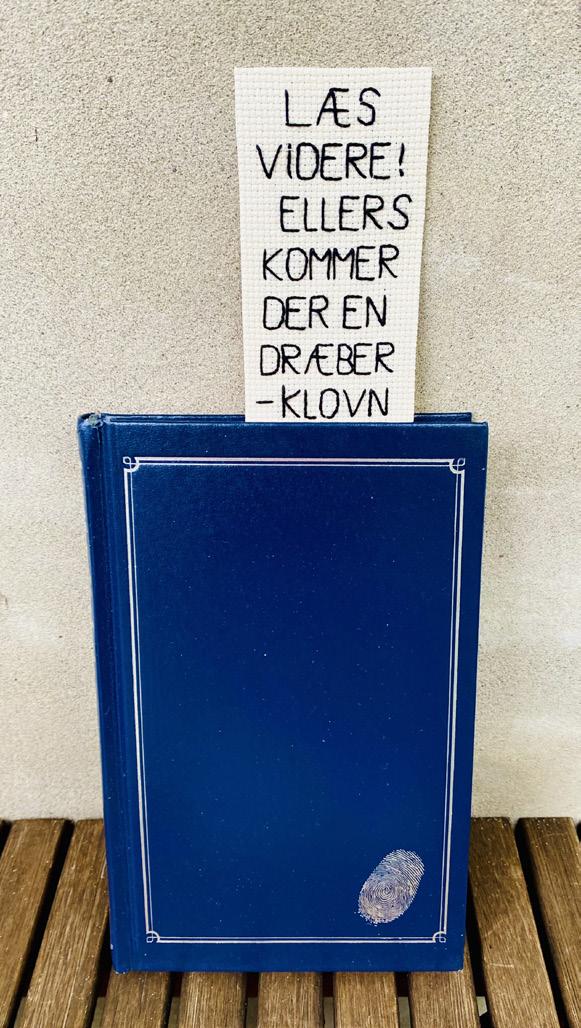 LÆS
ViDERE!
ELLERS
KOMMER
DER EN
DRÆBER
-KLOVN